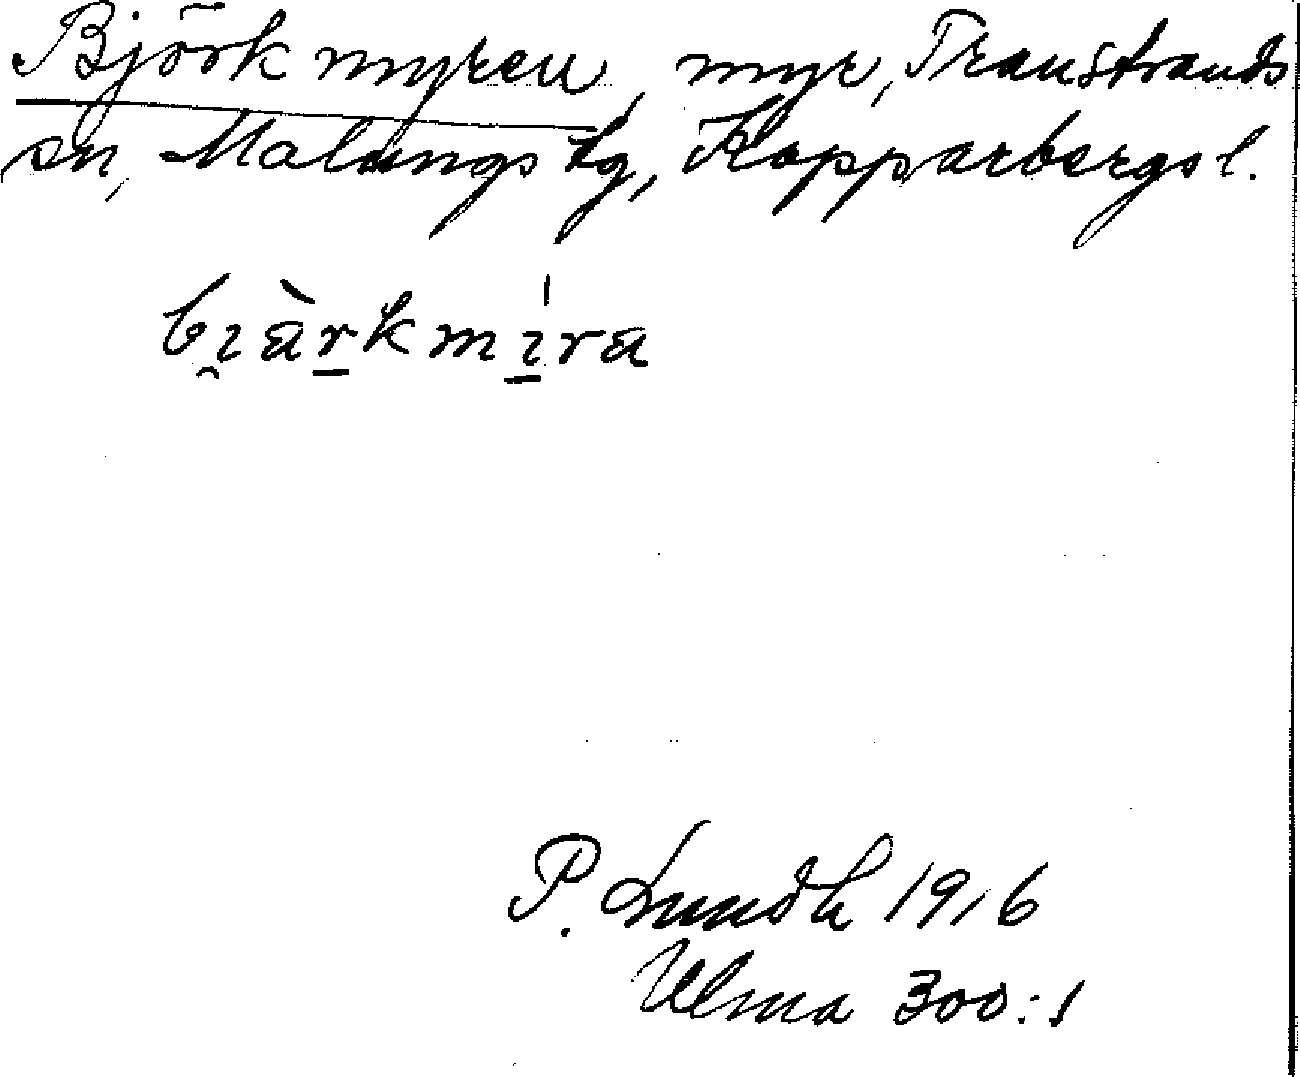 Björkmyren, myr, Transtrands
sn, Malungs tg, Kopparbergs l.
bi̯ä̀r̠kmı̠́ra
P. Lundh 1916
Ulma 300:1